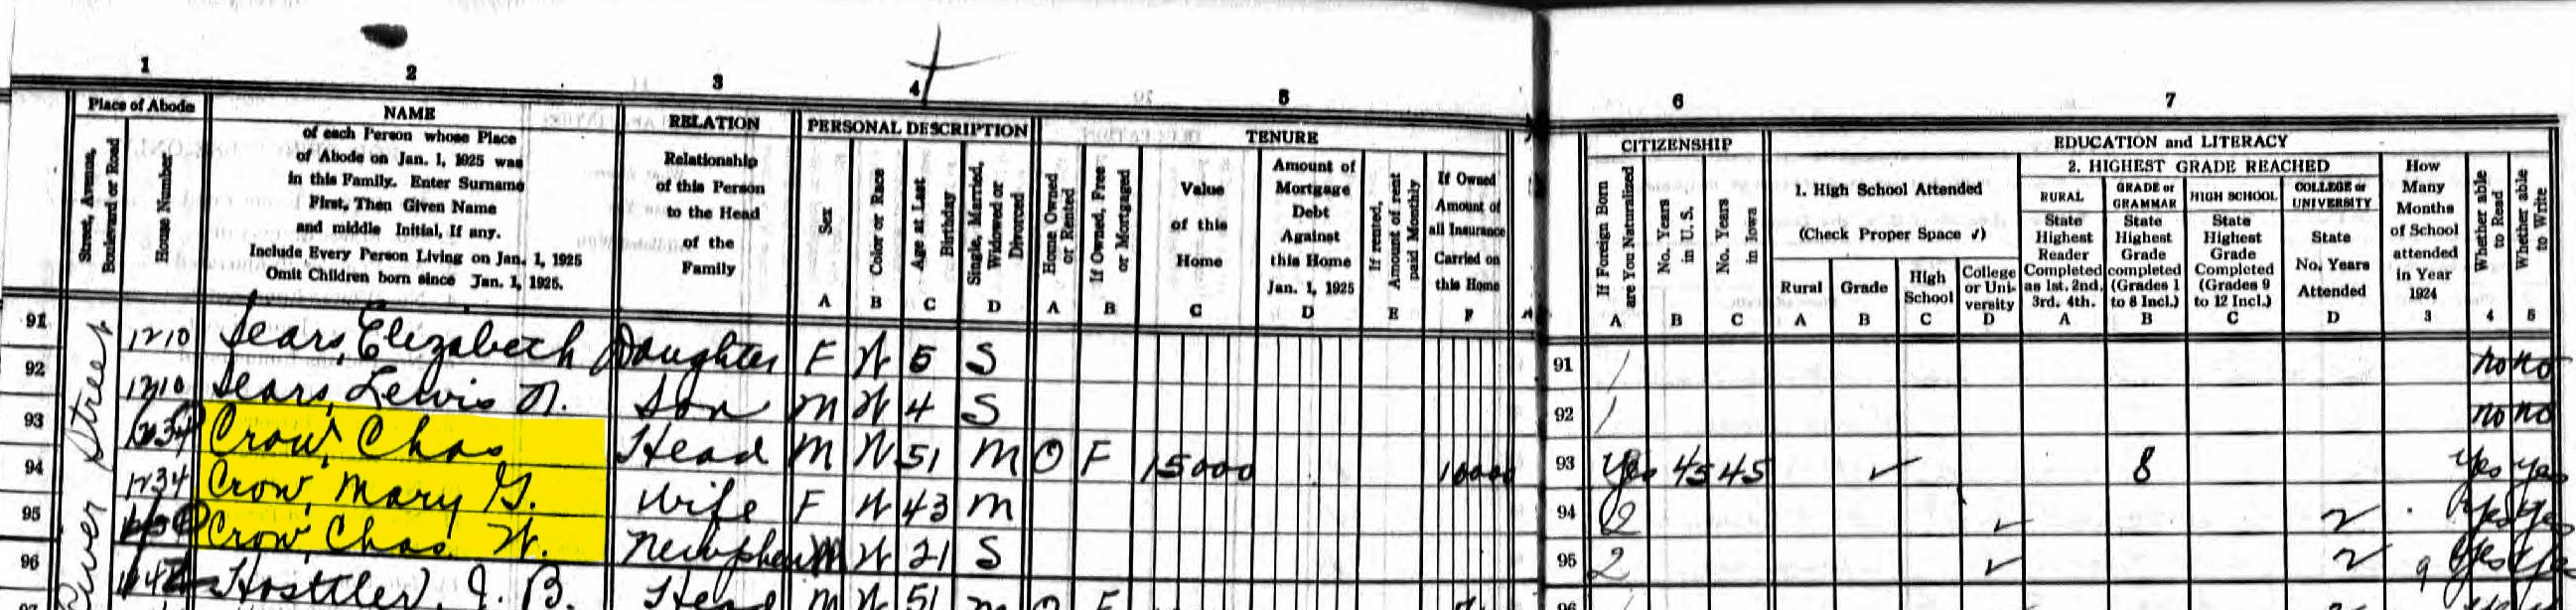 1 2 3 4 5 6 7
Place of Abode
Street, Avenue, Boulevard or Road
House Number
NAME
of each Person whose Place
of Abode on Jan. 1, 1925 was
in this Family. Enter Surname
First, Then Given Name
and middle Initial, If any.
Include Every Person Living on Jan. 1, 1925
Omit Children born since Jan. 1, 1925.
RELATION
Relationship
of this Person
to the Head
of the
Family
PERSONAL DESCRIPTION
Sex
A
Color or Race
B
Age at Last Birthday
C
Single, Married, Widowed or Divorced
D
TENURE
Home Owned or Rented
A
If Owned, Free or Mortgaged
B
Value
of this
Home
C
Amount of
Mortgage
Debt
Against
this Home
Jan. 1, 1925
D
If rented, Amount of rent paid Monthly
E
If Owned
Amount of
all Insurance
Carried on
this Home
F
CITIZENSHIP
If Foreign Born are You Naturalized
A
No. Years in U.S.
B
No. Years in Iowa
C
EDUCATION and LITERACY
1. High School Attended
(Check Proper Space ✓)
Rural
A
Grade
B
High
School
C
College
or Uni-
versity
D
2. HIGHEST GRADE REACHED
RURAL
State
Highest
Reader
Completed
as 1st. 2nd.
3rd. 4th.
A
GRADE or
GRAMMAR
State
Highest
Grade
completed
(Grades 1
to 8 Incl.)
B
HIGH SCHOOL
State
Highest
Grade
Completed
(Grades 9
to 12 Incl.)
C
COLLEGE or
UNIVERSITY
State
No. Years
Attended
D
How
Many
Months
of School
attended
in Year
1924
3
Whether able to Read
4
Whether able to Write
5
River Street
91 1210 Sears, Elizabeth Daughter F W 5 S 91 / no no
92 1210 Sears, Lewis N. Son M W 4 S 92 / no no
93 Crow, Chas Head M W 51 M O F 15000 10000 93 yes 45 45 ✓ 8 yes yes
94 1234 Crow, Mary G. Wife F W 43 M 94 2 ✓ 2 yes yes
95 Crow, Chas. W. Newphew M W 21 S 95 2 ✓ 2 9 yes yes
96 Hosttler, J. B. Head M W 51 M O F 96